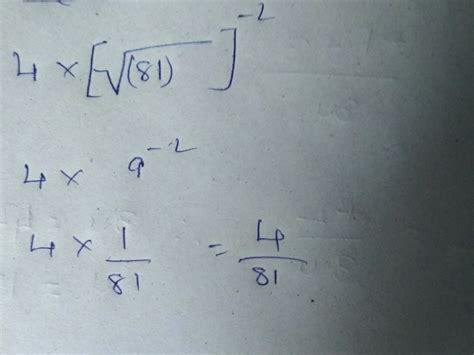 4 × [√(81)]⁻²
4 × 9⁻²
4 × 1/81 = 4/81